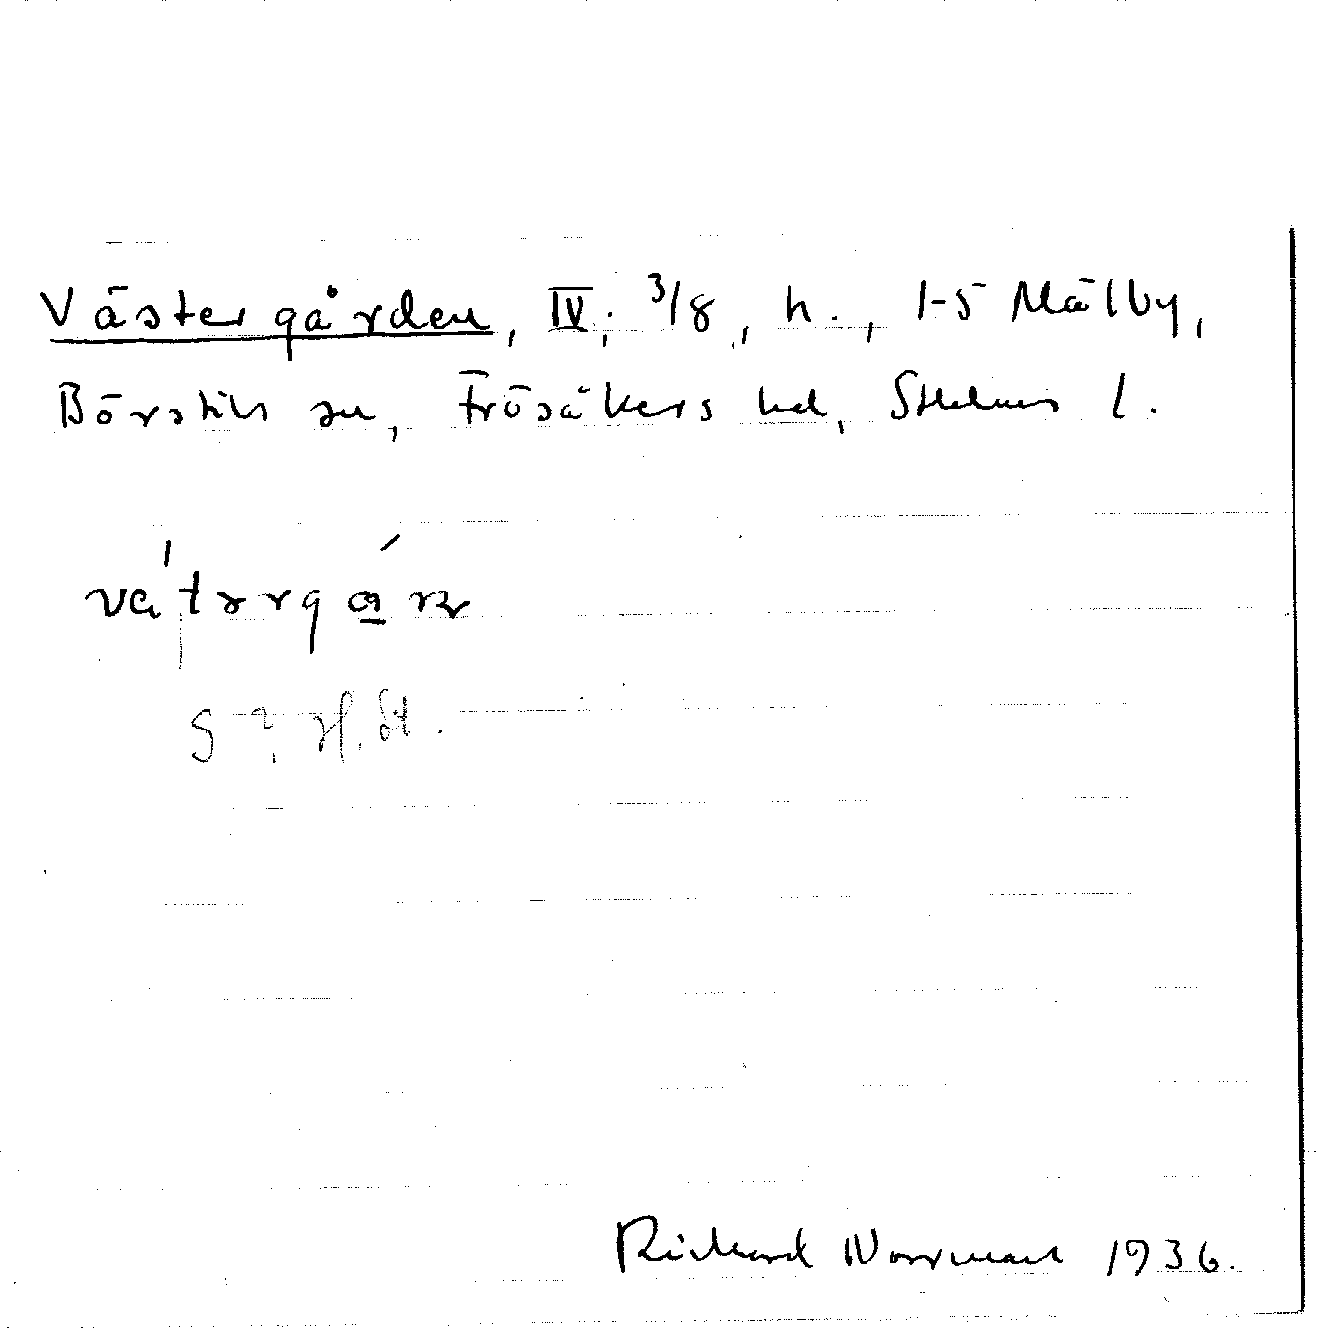 Västergården, IV; 3/8, h., 1-5 Mälby,
Börstils sn, Frösåkers hd, Sthlms l.
vä́tərgɑ́ṇ
S ?. H. St.
Richard Norrman 1936.